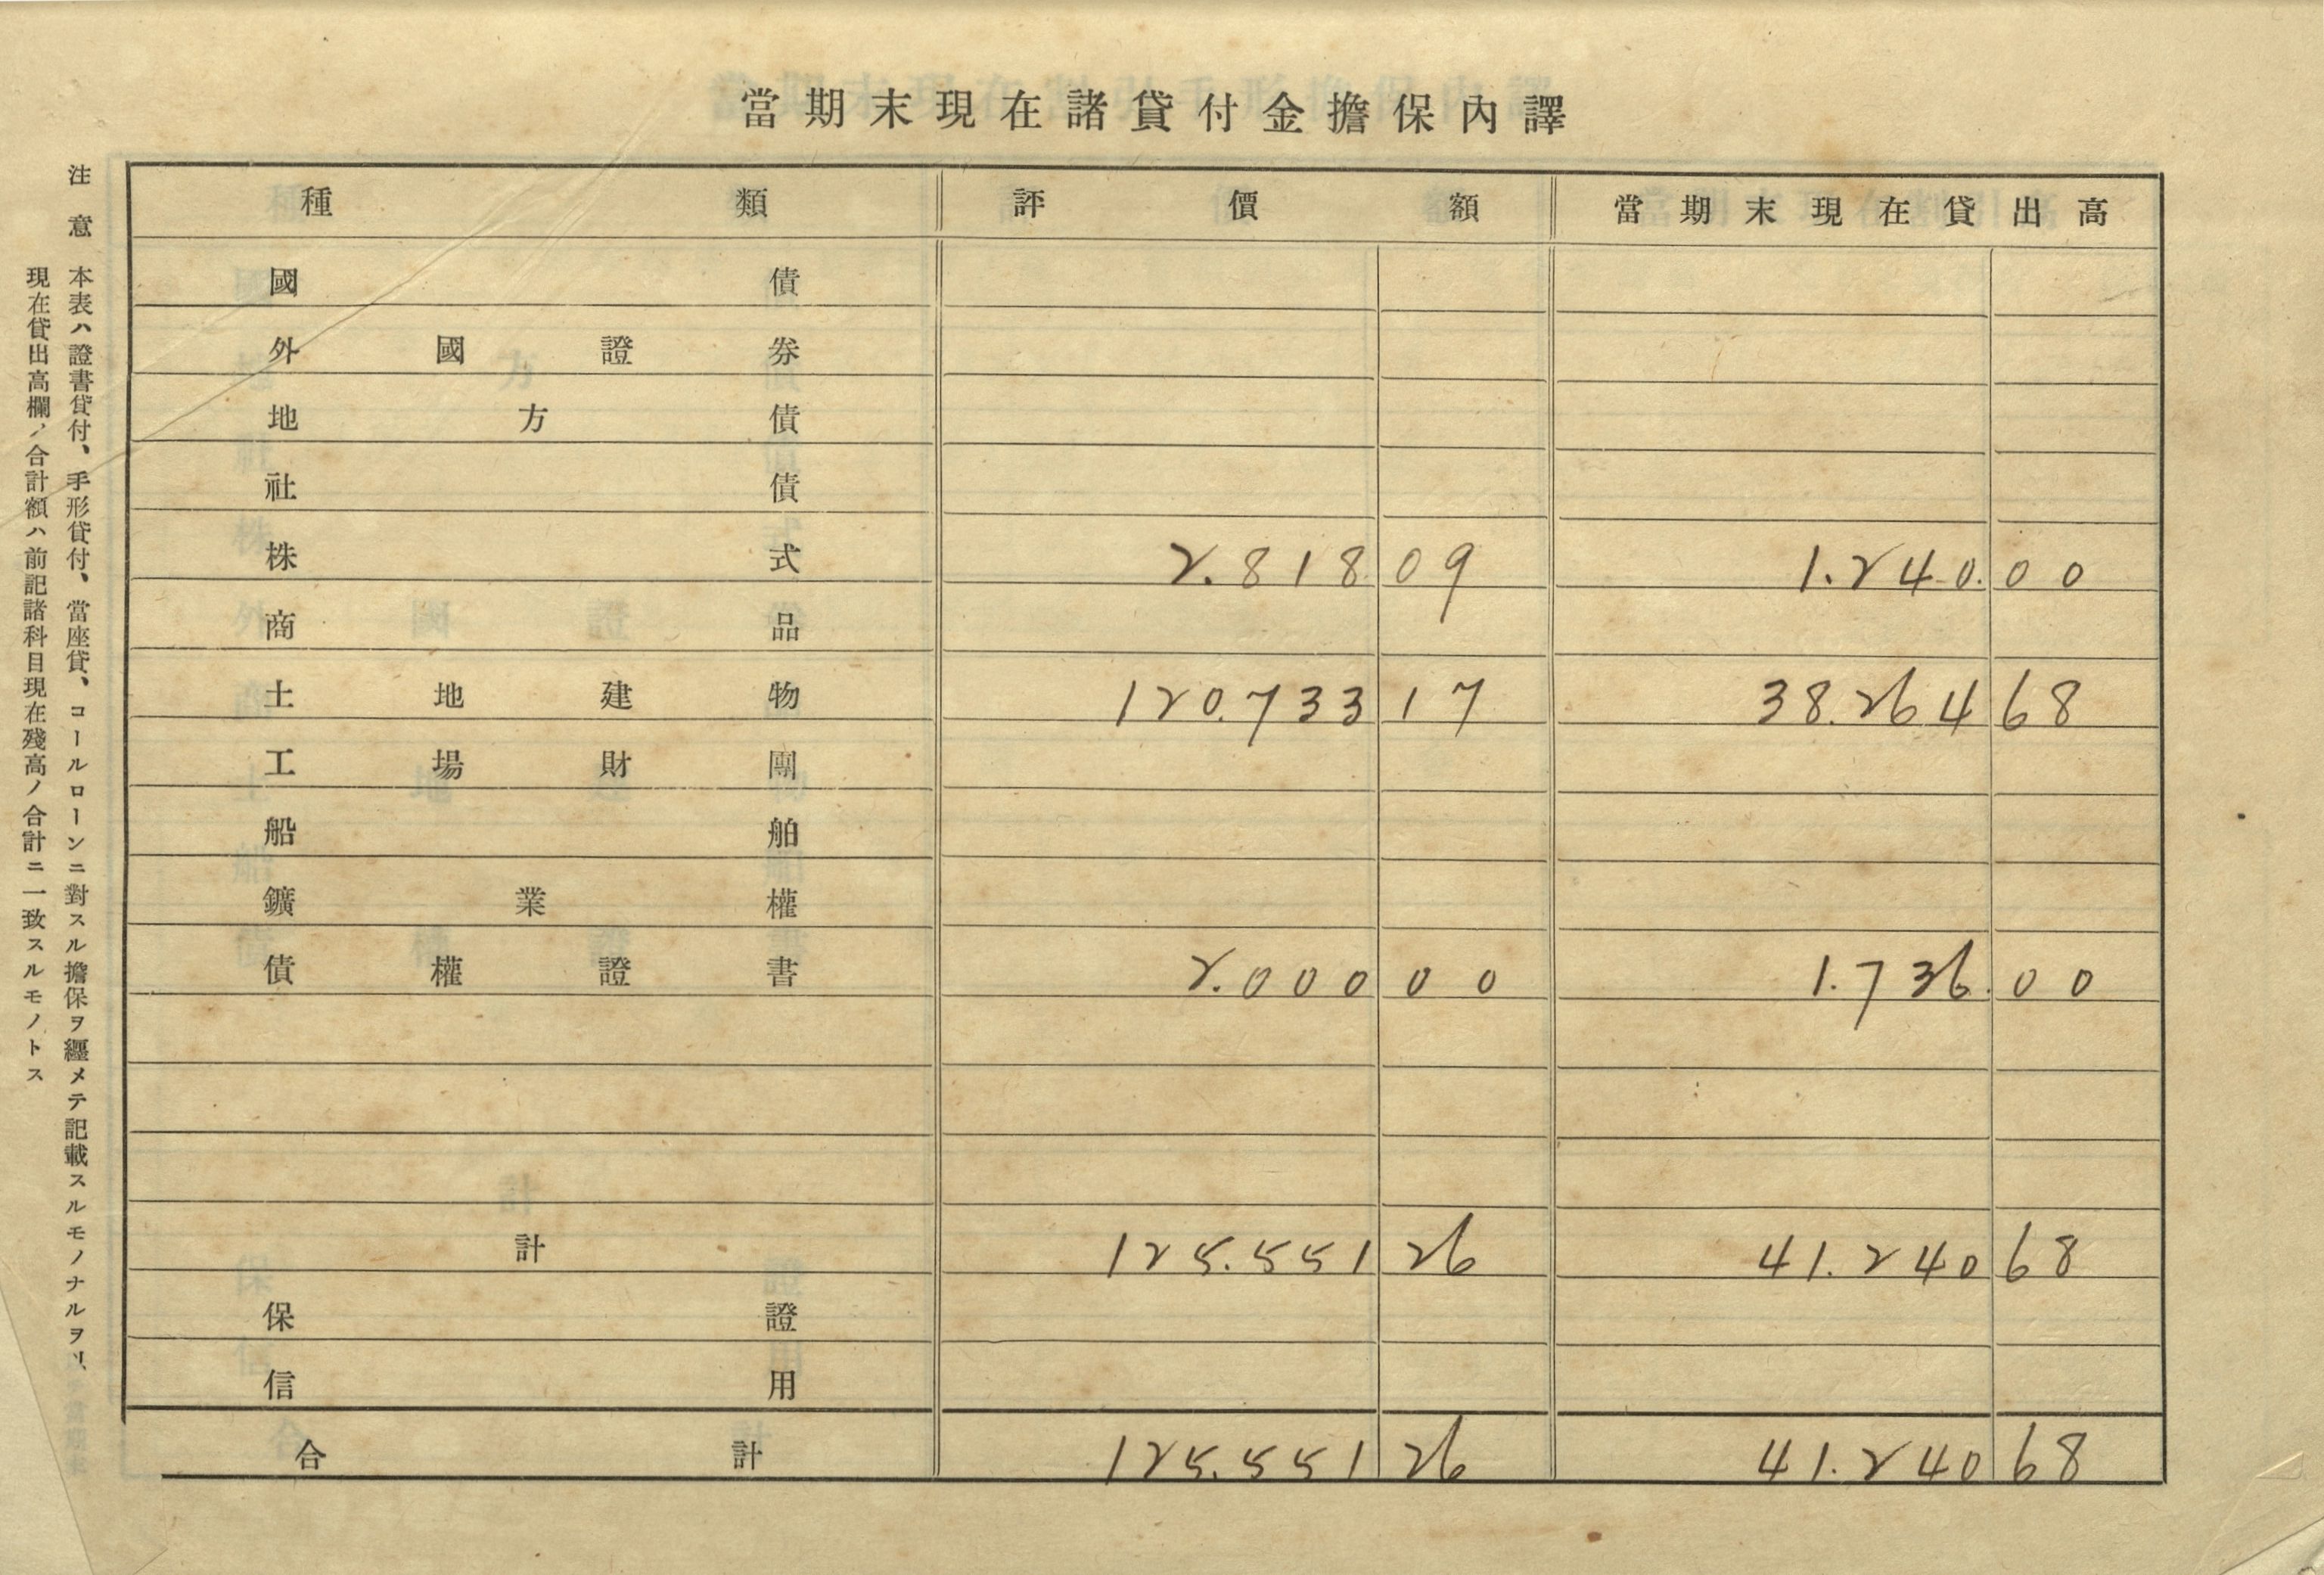 當期末現在諸貸付金擔保內譯
種類 評價額 當期末現在貸出高
國債
外國證券
地方債
社債
株式 2.818 09 1.240.00
商品
土地建物 120.733 17 38.264 68
工場財團
船舶
鑛業權
債權證書 2.000 00 1.736.00
計 125.551 26 41.240 68
保證
信用
合計 125.551 26 41.240 68
注意 本表ハ證書貸付、手形貸付、當座貸、コールローンニ對スル擔保ヲ纒メテ記載スルモノナルヲ以、
現在貸出高欄ノ合計額ハ前記諸科目現在殘高ノ合計ニ一致スルモノトス